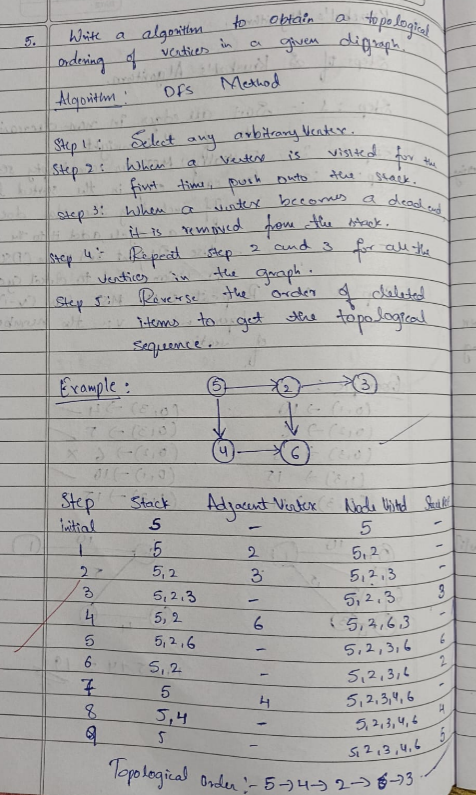 5. Write a algorithm to obtain a topological
ordering of vertices in a given digraph
Algorithm: DFS Method
Step 1: Select any arbitrary Vertex.
Step 2: When a vertex is visited for the
first time, push onto the stack.
Step 3: When a vertex becomes a dead end
it is removed from the stack.
Step 4: Repeat step 2 and 3 for all the
vertices in the graph.
Step 5: Reverse the order of deleted
items to get the topological
sequence.
Example:
5 2 3
4 6
Step Stack Adjacent Vertex Node Visitd
initial 5 - 5 -
1 5 2 5,2 -
2 5,2 3 5,2,3 -
3 5,2,3 - 5,2,3 3
4 5,2 6 5,2,6,3 -
5 5,2,6 - 5,2,3,6 6
6 5,2 - 5,2,3,6 2
7 5 4 5,2,3,4,6 -
8 5,4 - 5,2,3,4,6 4
9 5 - 5,2,3,4,6 5
Topological Order :- 5→4→2→6→3